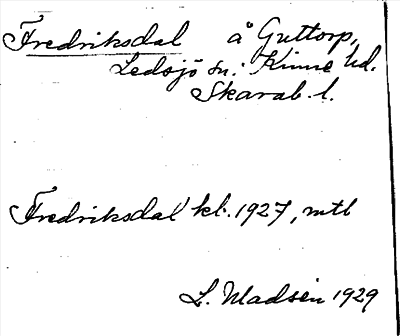 Fredriksdal å Guttorp,
Ledsjö sn. Kinne hd.
Skarab. l.
Fredriksdal kb. 1927, mtl
L. Madsén 1929